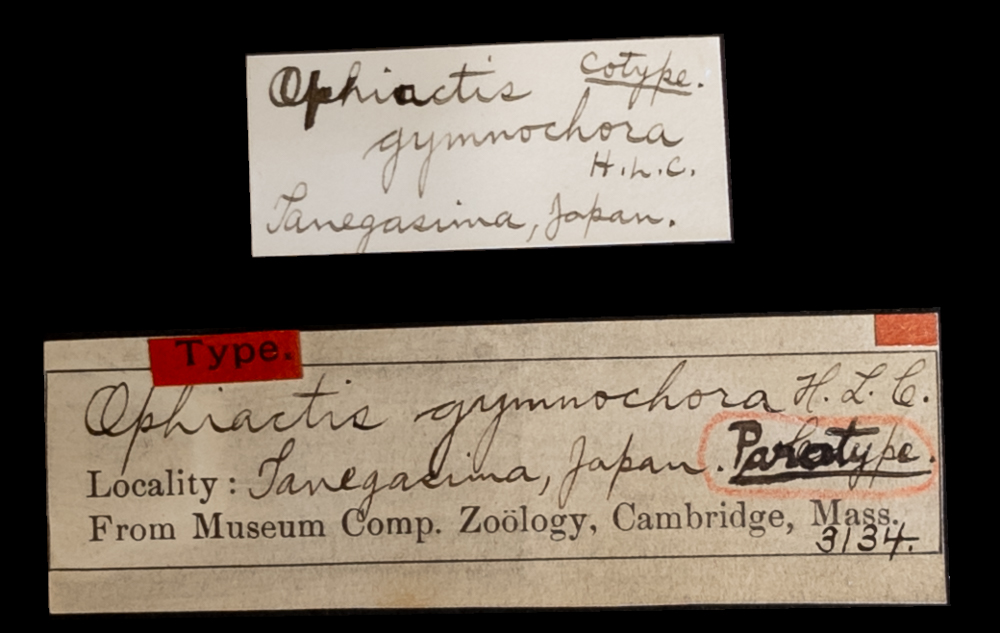 Ophiactis cotype.
gymnochora
H.L.C.
Tanegasima, Japan.
Type.
Ophiactis gymnochora H. L. C.
Locality: Tanegasima, Japan. Paratype.
From Museum Comp. Zoölogy, Cambridge, Mass.
3134.